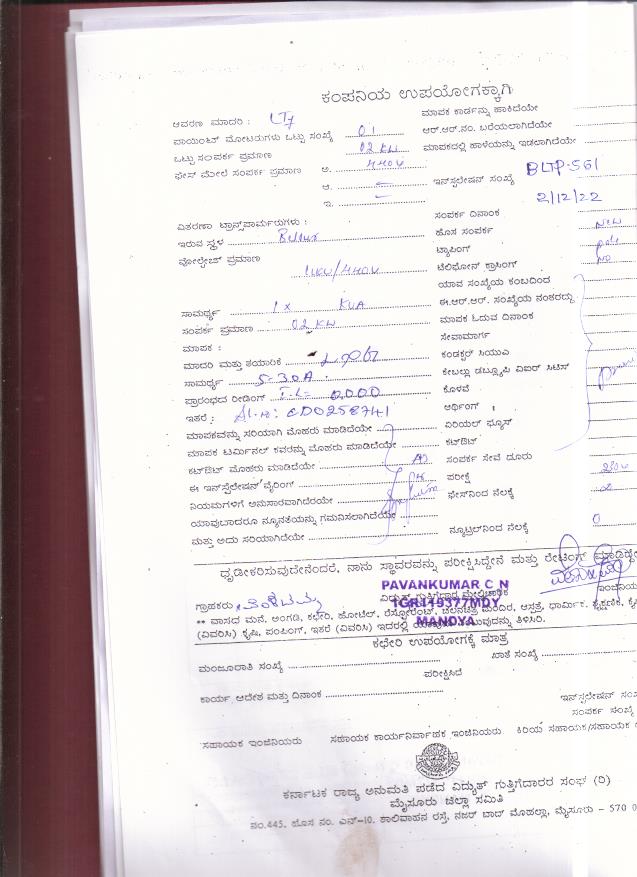 ಕಂಪನಿಯ ಉಪಯೋಗಕ್ಕಾಗಿ
ಆವರಣ ಮಾದರಿ : LT7
ಪಾಯಿಂಟ್ ಮೋಟರುಗಳು ಒಟ್ಟು ಸಂಖ್ಯೆ 01
ಒಟ್ಟು ಸಂಪರ್ಕ ಪ್ರಮಾಣ 02 KW
ಫೇಸ್ ಮೇಲೆ ಸಂಪರ್ಕ ಪ್ರಮಾಣ ಅ. 440V
ಆ.
ಇ.
ಮಾಪಕ ಕಾರ್ಡನ್ನು ಹಾಕಿದೆಯೇ
ಆರ್.ಆರ್.ನಂ. ಬರೆಯಲಾಗಿದೆಯೇ
ಮಾಪಕದಲ್ಲಿ ಹಾಳೆಯನ್ನು ಇಡಲಾಗಿದೆಯೇ
ಇನ್‌ಸ್ಟಲೇಷನ್ ಸಂಖ್ಯೆ BLTP-561
ಸಂಪರ್ಕ ದಿನಾಂಕ 2/12/22
ವಿತರಣಾ ಟ್ರಾನ್ಸ್‌ಫಾರ್ಮರುಗಳು :
ಇರುವ ಸ್ಥಳ Bellur
ವೋಲ್ಟೇಜ್ ಪ್ರಮಾಣ
11KV/440V
ಸಾಮರ್ಥ್ಯ 1 x KVA
ಸಂಪರ್ಕ ಪ್ರಮಾಣ 02 KW
ಮಾಪಕ :
ಮಾದರಿ ಮತ್ತು ತಯಾರಿಕೆ
ಸಾಮರ್ಥ್ಯ 5-30A
ಪ್ರಾರಂಭದ ರೀಡಿಂಗ್ 0,000
ಇತರೆ : Sl.No: CD0258741
ಮಾಪಕವನ್ನು ಸರಿಯಾಗಿ ಮೊಹರು ಮಾಡಿದೆಯೇ
ಮಾಪಕ ಟರ್ಮಿನಲ್ ಕವರನ್ನು ಮೊಹರು ಮಾಡಿದೆಯೇ
ಕಟ್‌ಔಟ್ ಮೊಹರು ಮಾಡಿದೆಯೇ
ಈ ಇನ್‌ಸ್ಟಲೇಷನ್ ವೈರಿಂಗ್
ನಿಯಮಗಳಿಗೆ ಅನುಸಾರವಾಗಿದೆಯೇ
ಯಾವುದಾದರೂ ನ್ಯೂನತೆಯನ್ನು ಗಮನಿಸಲಾಗಿದೆಯೇ
ಮತ್ತು ಅದು ಸರಿಯಾಗಿದೆಯೇ
ಹೊಸ ಸಂಪರ್ಕ New
ಟ್ಯಾಪಿಂಗ್ pole
ಟೆಲಿಫೋನ್ ಕ್ರಾಸಿಂಗ್ No
ಯಾವ ಸಂಖ್ಯೆಯ ಕಂಬದಿಂದ
ಈ.ಆರ್.ಆರ್. ಸಂಖ್ಯೆಯ ನಂತರದ್ದು
ಮಾಪಕ ಓದುವ ದಿನಾಂಕ
ಸೇವಾಮಾರ್ಗ
ಕಂಡಕ್ಟರ್ ಸಿಯುಎ
ಕೇಬಲ್ಲು ಡಬ್ಲ್ಯೂಪಿ ವಿಐಆರ್ ಸಿಟಿಸ್
ಕೊಳವೆ
ಅರ್ಥಿಂಗ್ :
ಏರಿಯಲ್ ಫ್ಯೂಸ್
ಕಟ್‌ಔಟ್
ಸಂಪರ್ಕ ಸೇವೆ ದೂರು
ಪರೀಕ್ಷೆ
ಫೇಸ್‌ನಿಂದ ನೆಲಕ್ಕೆ
ನ್ಯೂಟ್ರಲ್‌ನಿಂದ ನೆಲಕ್ಕೆ 0
ಧೃಡೀಕರಿಸುವುದೇನೆಂದರೆ, ನಾನು ಸ್ಥಾವರವನ್ನು ಪರೀಕ್ಷಿಸಿದ್ದೇನೆ ಮತ್ತು ರೇಟಿಂಗ್
PAVANKUMAR C N
1GRI19377MDY
MANDYA
ಗ್ರಾಹಕರು
ವಿದ್ಯುತ್ ಗುತ್ತಿಗೆದಾರ
** ವಾಸದ ಮನೆ, ಅಂಗಡಿ, ಕಛೇರಿ, ಹೋಟೆಲ್, ರೆಸ್ಟೋರೆಂಟ್, ಚಲನಚಿತ್ರ ಮಂದಿರ, ಆಸ್ಪತ್ರೆ, ಧಾರ್ಮಿಕ, ಶೈಕ್ಷಣಿಕ,
(ವಿವರಿಸಿ) ಕೃಷಿ, ಪಂಪಿಂಗ್, ಇತರೆ (ವಿವರಿಸಿ) ಇದರಲ್ಲಿ ತಿಳಿಸಿರಿ.
ಕಛೇರಿ ಉಪಯೋಗಕ್ಕೆ ಮಾತ್ರ
ಮಂಜೂರಾತಿ ಸಂಖ್ಯೆ ಖಾತೆ ಸಂಖ್ಯೆ
ಪರೀಕ್ಷಿಸಿದೆ
ಕಾರ್ಯ ಆದೇಶ ಮತ್ತು ದಿನಾಂಕ
ಸಂಪರ್ಕ ಸಂಖ್ಯೆ
ಸಹಾಯಕ ಇಂಜಿನಿಯರು ಸಹಾಯಕ ಕಾರ್ಯನಿರ್ವಾಹಕ ಇಂಜಿನಿಯರು ಕಿರಿಯ ಸಹಾಯಕ/ಸಹಾಯಕ
ಕರ್ನಾಟಕ ರಾಜ್ಯ ಅನುಮತಿ ಪಡೆದ ವಿದ್ಯುತ್ ಗುತ್ತಿಗೆದಾರರ ಸಂಘ (ರಿ)
ಮೈಸೂರು ಜಿಲ್ಲಾ ಸಮಿತಿ
ನಂ.445, ಹೊಸ ನಂ. ಎನ್-10, ಶಾಲಿವಾಹನ ರಸ್ತೆ, ನಜರ್ ಬಾದ್ ಮೊಹಲ್ಲಾ, ಮೈಸೂರು - 570 0